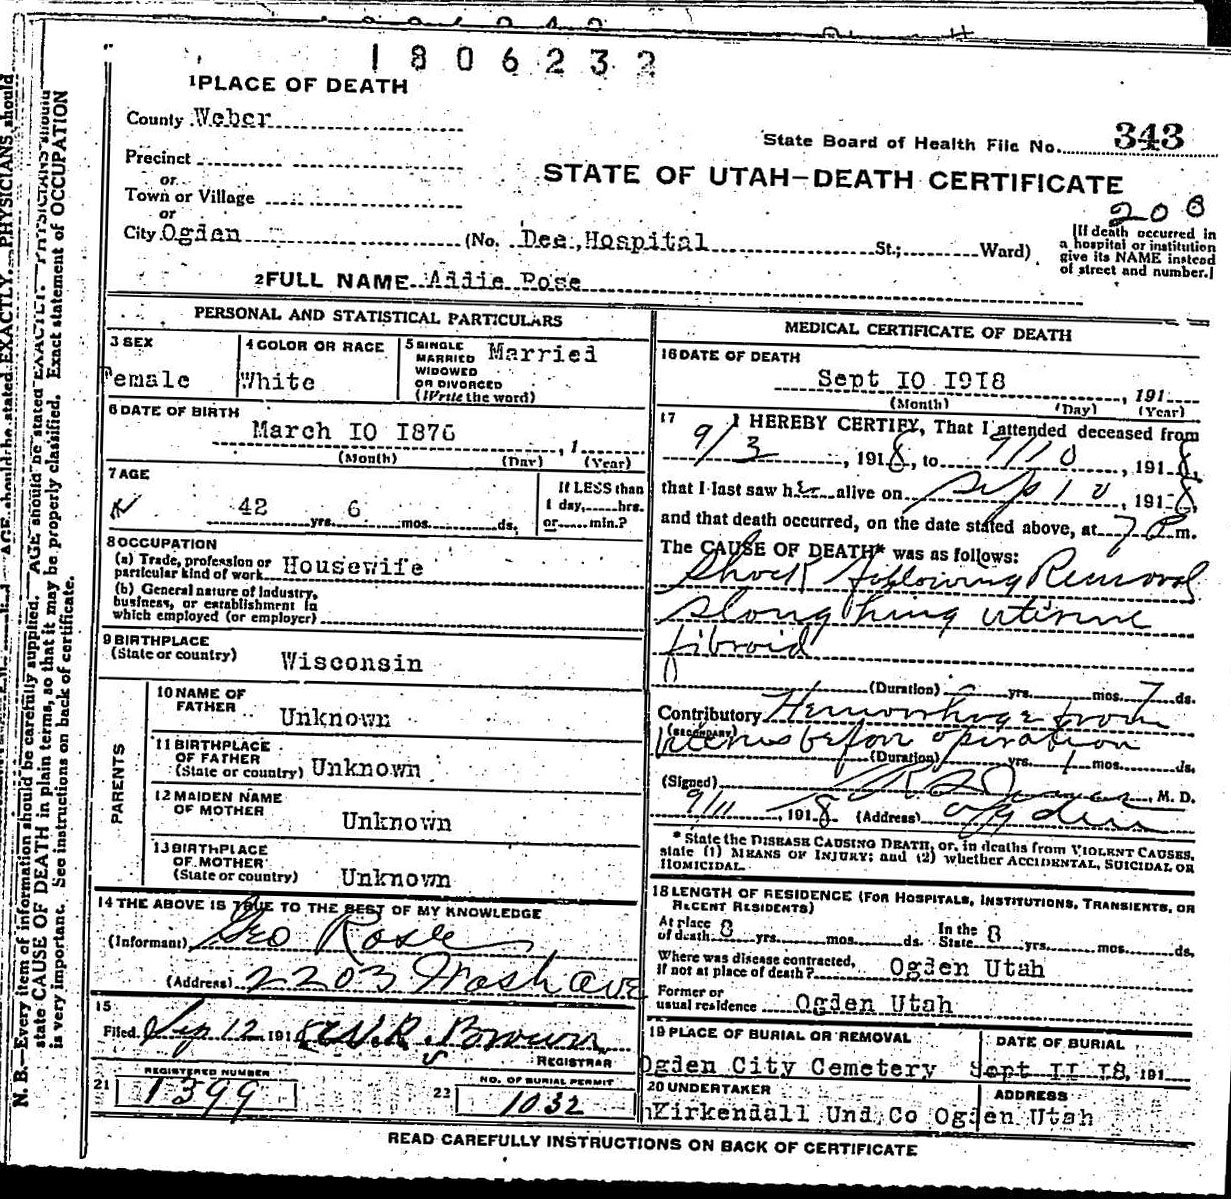 1806232
1 PLACE OF DEATH
County Weber
State Board of Health File No. 343
Precinct
or
Town or Village
or
STATE OF UTAH—DEATH CERTIFICATE
208
City Ogden (No. Dee, Hospital St.; Ward)
[If death occurred in
a hospital or institution
give its NAME instead
of street and number.]
2 FULL NAME Addie Rose
PERSONAL AND STATISTICAL PARTICULARS
3 SEX
Female
4 COLOR OR RACE
White
5 SINGLE
MARRIED
WIDOWED
OR DIVORCED
(Write the word)
Married
6 DATE OF BIRTH
March IO I876
(Month) (Day) , 1 (Year)
7 AGE
42 yrs. 6 mos. ds.
If LESS than
1 day, hrs.
or min.?
8 OCCUPATION
(a) Trade, profession or
particular kind of work Housewife
(b) General nature of Industry,
business, or establishment in
which employed (or employer)
9 BIRTHPLACE
(State or country) Wisconsin
PARENTS
10 NAME OF
FATHER
Unknown
11 BIRTHPLACE
OF FATHER
(State or country) Unknown
12 MAIDEN NAME
OF MOTHER
Unknown
13 BIRTHPLACE
OF MOTHER
(State or country) Unknown
14 THE ABOVE IS TRUE TO THE BEST OF MY KNOWLEDGE
(Informant) Geo Rose
(Address) 2203 Wash ave
15
Filed Sep 12 1918 W.R. Brown
REGISTRAR
REGISTERED NUMBER
21 1399
NO. OF BURIAL PERMIT
22 1032
MEDICAL CERTIFICATE OF DEATH
16 DATE OF DEATH
Sept IO I9I8 , 191
(Month) (Day) (Year)
17 I HEREBY CERTIFY, That I attended deceased from
9/3 , 1918, to 9/10 , 1918,
that I last saw her alive on Sep 10 , 1918,
and that death occurred, on the date stated above, at 7 P m.
The CAUSE OF DEATH* was as follows:
Shock following Removal
sloughing uterine
fibroid
(Duration) yrs. mos. 7 ds.
Contributory Hemorrhage from
(SECONDARY)
uterus before operation
(Duration) yrs. 1 mos. ds.
(Signed) M. D.
9/11 , 1918 (Address) Ogden
* State the DISEASE CAUSING DEATH, or, in deaths from VIOLENT CAUSES,
state (1) MEANS OF INJURY; and (2) whether ACCIDENTAL, SUICIDAL OR
HOMICIDAL.
18 LENGTH OF RESIDENCE (FOR HOSPITALS, INSTITUTIONS, TRANSIENTS, OR
RECENT RESIDENTS)
At place
of death 8 yrs. mos. ds.
In the
State 8 yrs. mos. ds.
Where was disease contracted,
if not at place of death? Ogden Utah
Former or
usual residence Ogden Utah
19 PLACE OF BURIAL OR REMOVAL
Ogden City Cemetery
DATE OF BURIAL
Sept II I8, 191
20 UNDERTAKER
Kirkendall Und, Co
ADDRESS
Ogden Utah
READ CAREFULLY INSTRUCTIONS ON BACK OF CERTIFICATE
N. B.—Every item of information should be carefully supplied. AGE should be stated EXACTLY. PHYSICIANS should
state CAUSE OF DEATH in plain terms, so that it may be properly classified. Exact statement of OCCUPATION
is very important. See instructions on back of certificate.